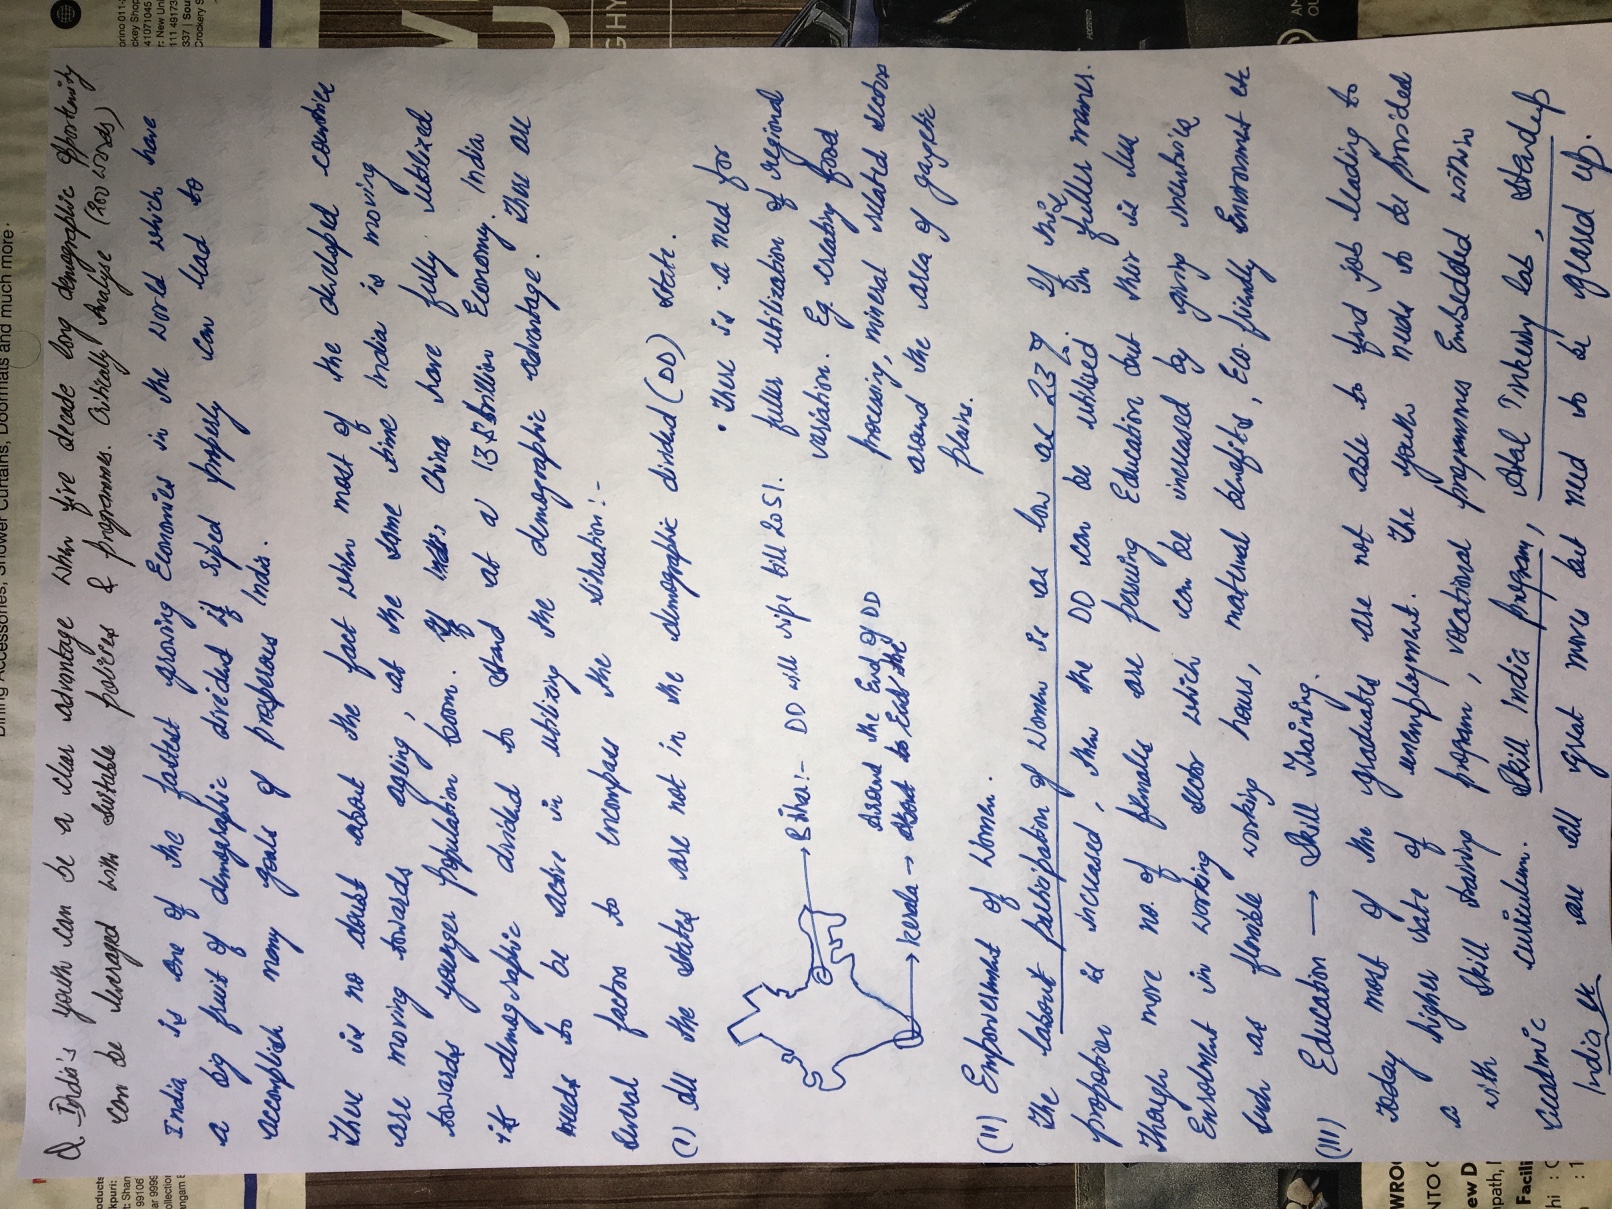 Dining Accessories, Shower Curtains, Doormats and much more
Q. India's youth can be a clear advantage when five decade long demographic opportunity
can be leveraged with suitable policies & programmes. Critically Analyse (200 words)
India is one of the fastest growing Economies in the world which have
a big fruit of demographic divided if riped properly can lead to
accomplish many goals of prosperous India.
There is no doubt about the fact when most of the developed countries
are moving towards ageing, at the same time India is moving
towards younger population boom. If China have fully utilized
its demographic divided to stand at a 13.8 trillion Economy. India
needs to be active in utilizing the demographic advantage. There are
several factors to encompass the situation:-
(I) All the states are not in the demographic divided (DD) state.
→ Bihar:- DD will ripe till 2051.
around the End of DD
→ Kerala → about to End the
• There is a need for
fuller utilization of regional
variation. Eg. creating food
processing, mineral related sectors
around the area of gangetic
plains.
(II) Empowerment of Women.
The labour participation of Women is as low as 23%. If this
proportion is increased, then the DD can be utilised in fuller manner.
Though more no. of females are perusing Education but their is less
Enrolment in working sector which can be increased by giving incentives
such as flexible working hours, maternal benefits, Eco-friendly Environment etc
(III) Education → Skill Training.
Today most of the graduates are not able to find job leading to
a higher rate of unemployment. The youth needs to be provided
with skill training program, vocational programms Embedded within
academic curiculum. Skill India program, Atal Tinkering lab, Standup
India etc are all great moves but need to be geared up.